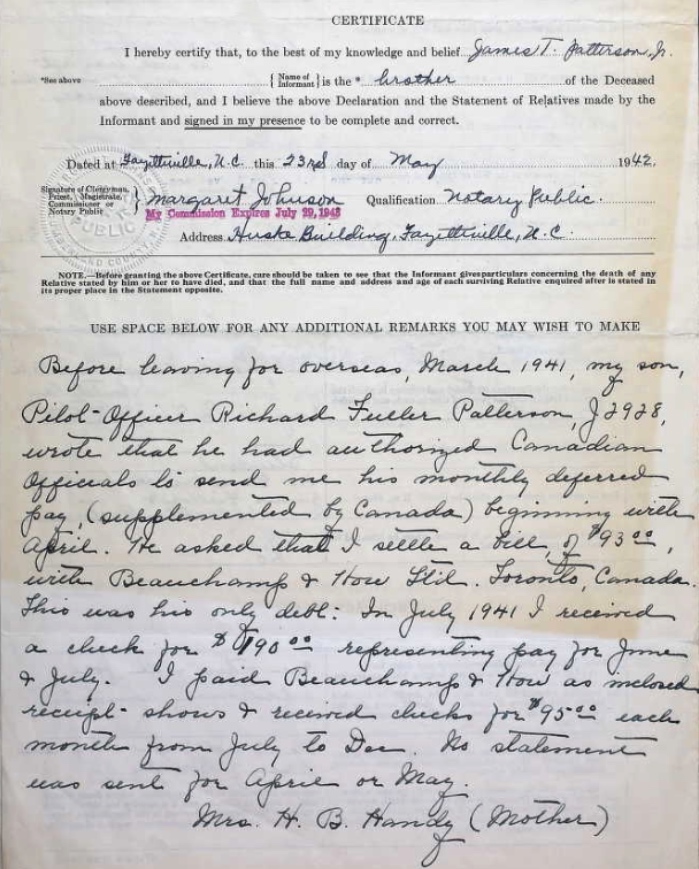 CERTIFICATE
I hereby certify that, to the best of my knowledge and belief James T. Patterson, Jr.
*See above { Name of Informant } is the * brother of the Deceased
above described, and I believe the above Declaration and the Statement of Relatives made by the
Informant and signed in my presence to be complete and correct.
Dated at Fayetteville, N.C. this 23rd day of May 1942.
Signature of Clergyman, Priest, Magistrate, Commissioner or Notary Public } Margaret Johnson Qualification Notary Public.
My Commission Expires July 29, 1943
Address Huske Building, Fayetteville, N.C.
NOTE.—Before granting the above Certificate, care should be taken to see that the Informant gives particulars concerning the death of any
Relative stated by him or her to have died, and that the full name and address and age of each surviving Relative enquired after is stated in
its proper place in the Statement opposite.
USE SPACE BELOW FOR ANY ADDITIONAL REMARKS YOU MAY WISH TO MAKE
Before leaving for overseas, March 1941, my son,
Pilot-Officer Richard Fuller Patterson, J2928,
wrote that he had authorized Canadian
Officials to send me his monthly deferred
pay, (supplemented by Canada) beginning with
April. He asked that I settle a bill, of $93.00,
with Beauchamp & How Ltd. Toronto, Canada.
This was his only debt. In July 1941 I received
a check for $190.00 representing pay for June
& July. I paid Beauchamp & How as inclosed
receipt shows & received checks for $95.00 each
month from July to Dec. No statement
was sent for April or May.
Mrs. H. B. Handy (Mother)